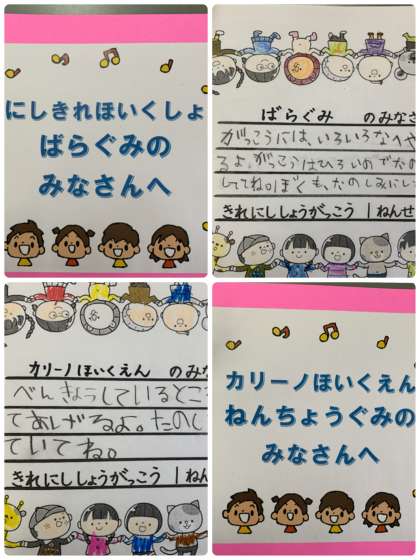 にしきれほいくしょ
ばらぐみの
みなさんへ
ばらぐみ のみなさ
がっこうには、いろいろなへや
るよ。がっこうはひろいのでたの
しててね。ぼくも、たのしみにし
きれにししょうがっこう 1ねんせ
カリーノほいくえん のみな
べんきょうしているところ
てあげるよ。たのし
ていてね。
きれにししょうがっこう 1ねん
カリーノほいくえん
ねんちょうぐみの
みなさんへ